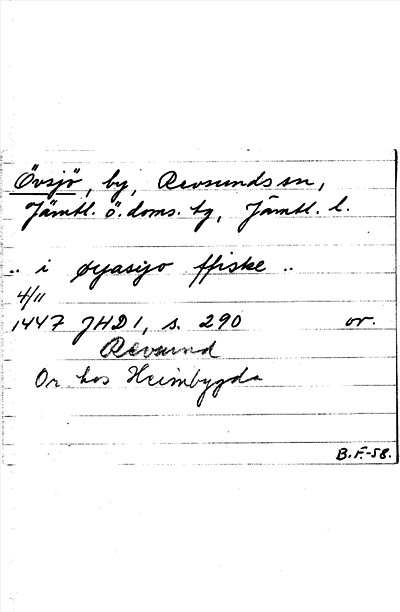 Övsjö, by, Revsunds sn,
Jämtl. ö. doms. tg, Jämtl. l.
.. i øyasijo ffiske ..
4/11
1447 JHD 1, s. 290 or.
Revsund
Or hos Heimbygda
B.F.-58.